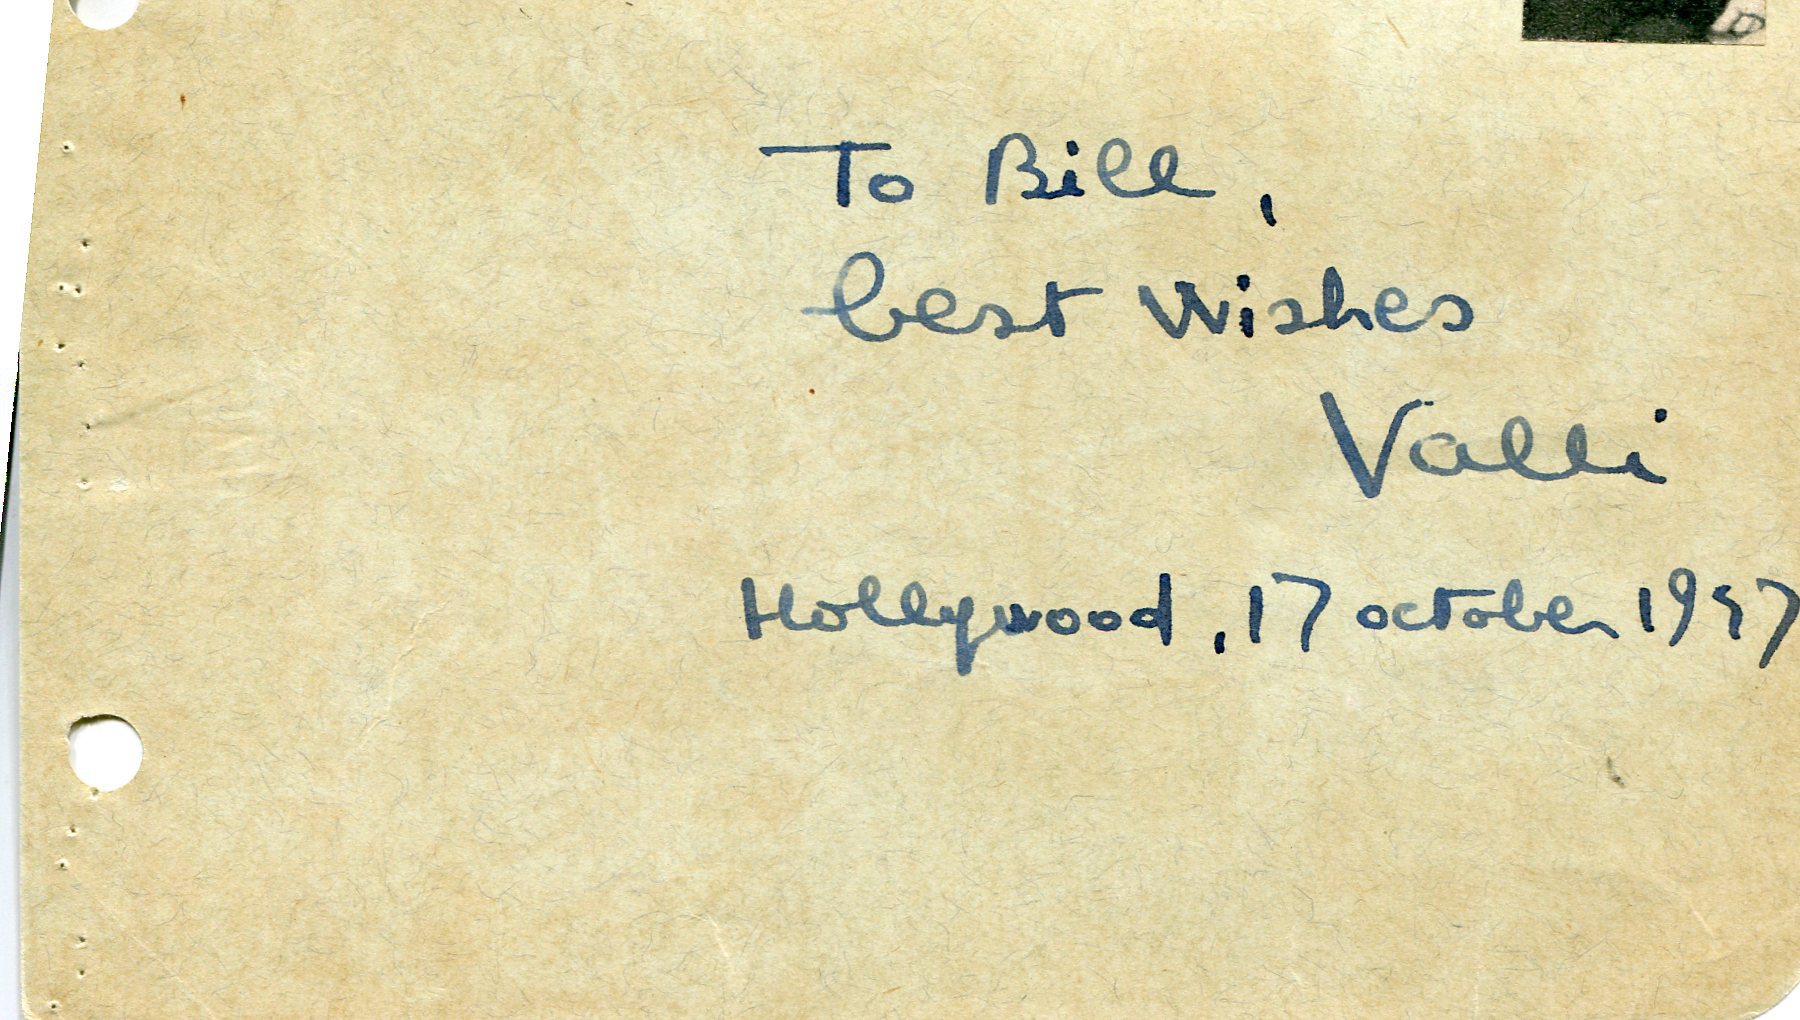 To Bill,
best wishes
Valli
Hollywood, 17 october 1947